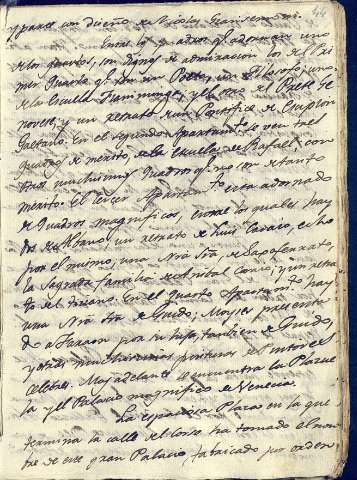 y parece con diseño de Nicolas Giansemoni.
Entre los quadros q.e adornan uno
de los quartos, son dignos de admiracion los del Pri
mer Quarto q.e son un Poeta, un Filosofo, uno
de la Escuela Flaminga, y el otro del Prete Ge
novese, y un retrato de un Pontifice de Scipion
Gaetano. En el segundo Apartam.to se ven tres
quadros de merito, de la escuela de Rafael, con
otros muchisimos Quadros q.e no son de tanto
merito. El tercer Apartam.to esta adornado
de Quadros magnificos, entre los quales hay
dos de Albano, un retrato de Luis Caracio, echo
por el mismo, una Nrã Srã de Sasoferrato,
la Sagrada familia de Anibal Caraci, y un retra
to del Tiziano. En el quarto Apartam.to hay
una Nrã Srã de Guido, Moyses presenta
do a Faraon por su hija, tambien de Guido,
y otras muchisimas pinturas de Pintores
celebres. Mas adelante se encuentra la Plazue
la y el Palacio magnifico de Venecia.
La espaciosa Plaza en la que
termina la calle del Corso ha tomado el nom
bre de este gran Palacio fabricado por orden